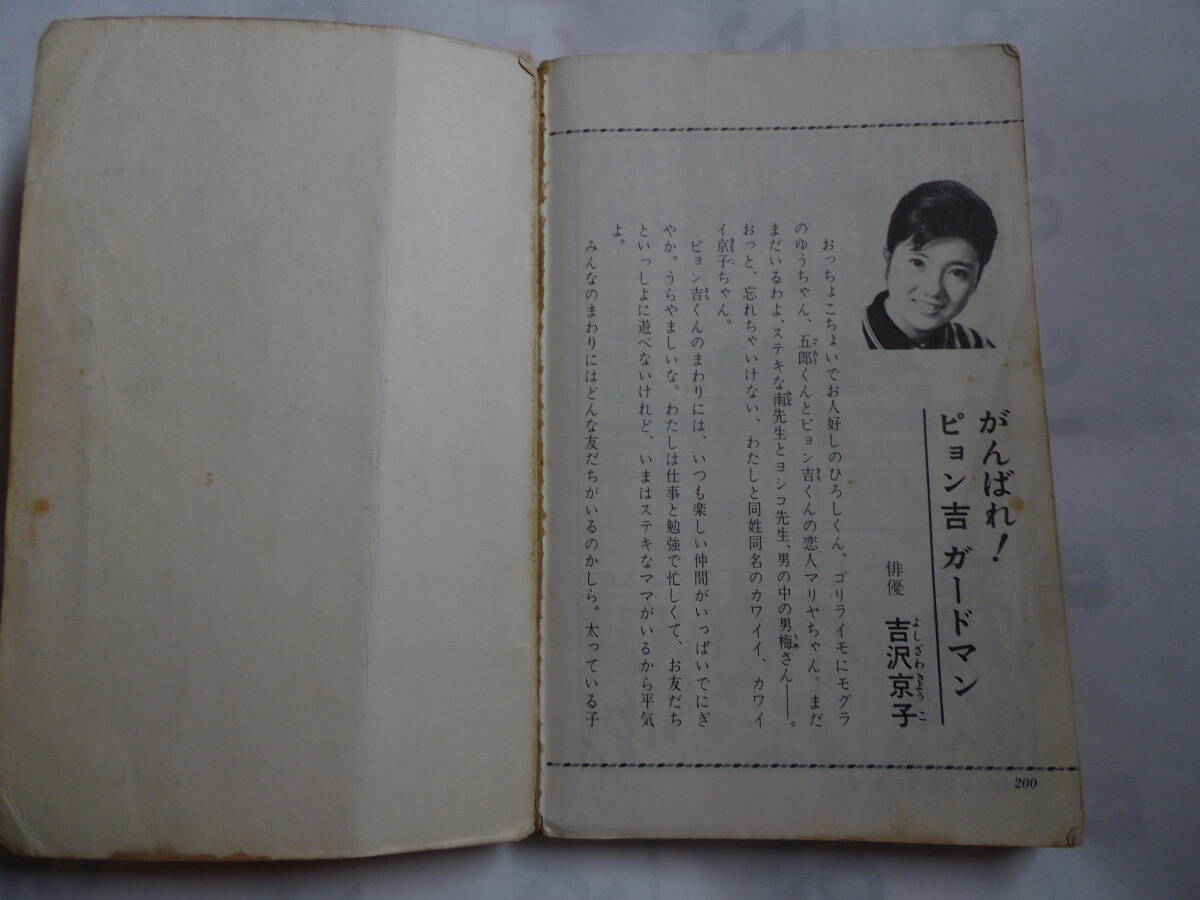 がんばれ！
ピョン吉 ガードマン
俳優 吉沢京子
よしざわきょうこ
おっちょこちょいでお人好しのひろしくん、ゴリライモにモグラ
のゆうちゃん、五郎くんとピョン吉くんの恋人マリヤちゃん。まだ
まだいるわよ、ステキな南先生とヨシコ先生、男の中の男梅さん――。
おっと、忘れちゃいけない、わたしと同姓同名のカワイイ、カワイ
イ京子ちゃん。
ピョン吉くんのまわりには、いつも楽しい仲間がいっぱいでにぎ
やか。うらやましいな。わたしは仕事と勉強で忙しくて、お友だち
といっしよに遊べないけれど、いまはステキなママがいるから平気
よ。
みんなのまわりにはどんな友だちがいるのかしら。太っている子
200